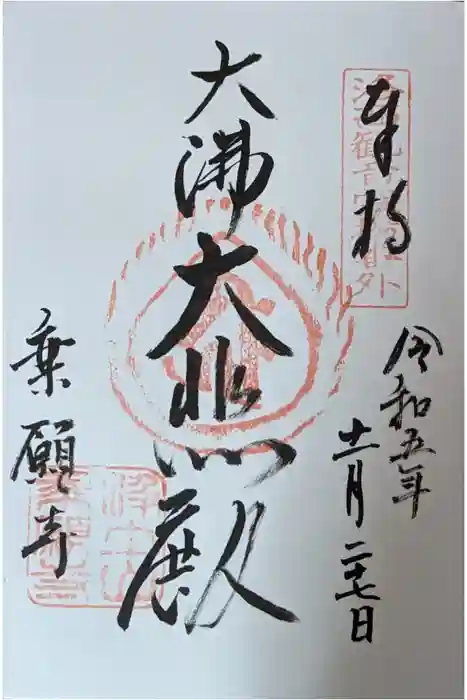 奉拝
令和五年
十一月二十七日
大佛大悲殿
乗願寺